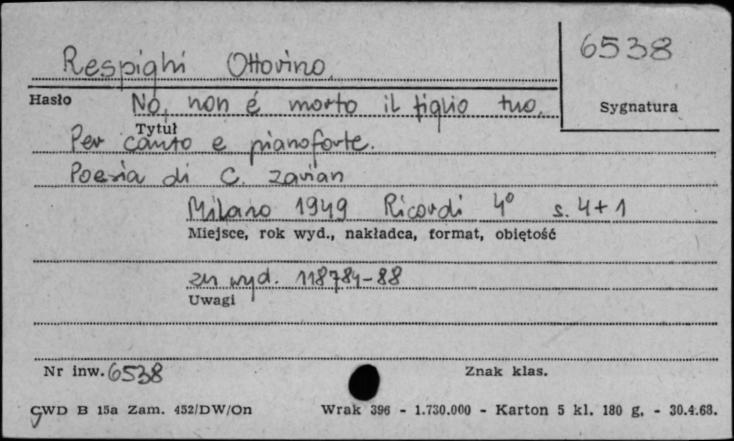 6538
Respighi Ottorino.
Hasło No, non é morto il figlio tuo. Sygnatura
Tytuł
Per canto e pianoforte.
Poesia di C. Zarian
Milano 1949 Ricordi 4° s. 4+1
Miejsce, rok wyd., nakładca, format, objętość
zn wyd. 118784-88
Uwagi
Nr inw. 6538 Znak klas.
CWD B 15a Zam. 452/DW/On Wrak 396 - 1.730.000 - Karton 5 kl. 180 g. - 30.4.63.